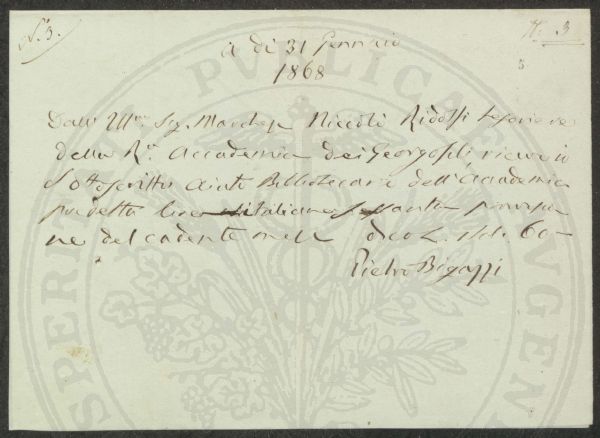 N.° 3.
N. 3
5
a dì 31 Gennaio
1868
Dall' Ill.mo Sig. Marchese Niccolò Ridolfi tesoriere
della R.a Accademia dei Georgofili ricevo io
Sottoscritto Aiuto Bibliotecario dell'Accademia
predetta lire italiane sessanta provvisio
ne del cadente mese dico L. 60 –
Pietro Bigazzi
PROSPERITATI PVBLICAE AVGENDAE